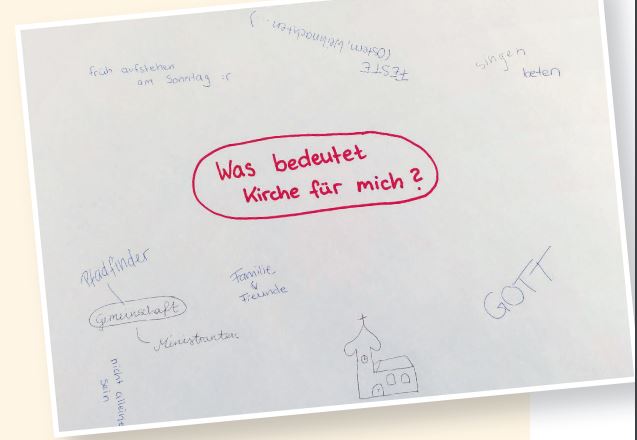 FESTE
(Ostern, Weihnachten...)
früh aufstehen
am Sonntag :r
singen
beten
Was bedeutet
Kirche für mich?
Pfadfinder
Gemeinschaft
Ministranten
Familie
&
Freunde
GOTT
nicht alleine
Sein